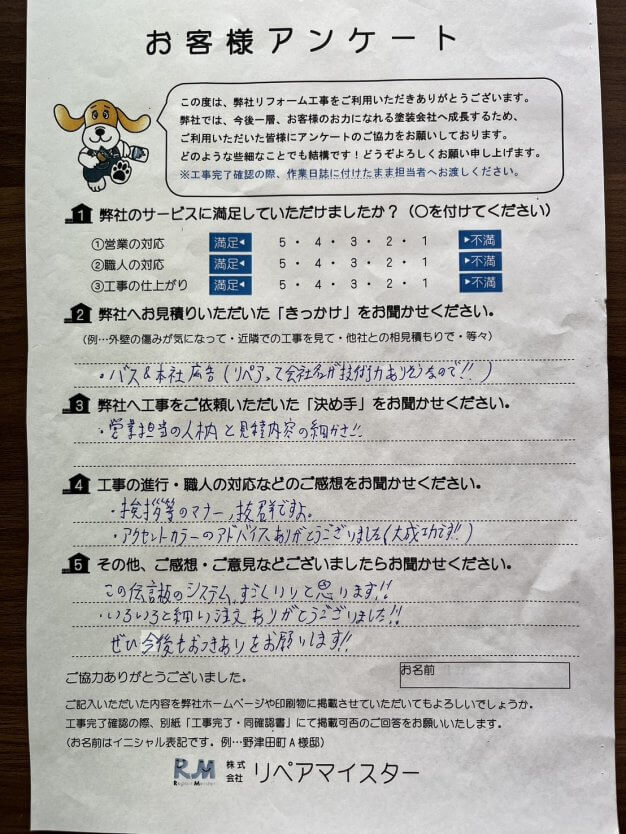 お客様アンケート
この度は、弊社リフォーム工事をご利用いただきありがとうございます。
弊社では、今後一層、お客様のお力になれる塗装会社へ成長するため、
ご利用いただいた皆様にアンケートのご協力をお願いしております。
どのような些細なことでも結構です!どうぞよろしくお願い申し上げます。
※工事完了確認の際、作業日誌に付けたまま担当者へお渡しください。
1 弊社のサービスに満足していただけましたか?(〇を付けてください)
①営業の対応 満足◀ 5・4・3・2・1 ▶不満
②職人の対応 満足◀ 5・4・3・2・1 ▶不満
③工事の仕上がり 満足◀ 5・4・3・2・1 ▶不満
2 弊社へお見積りいただいた「きっかけ」をお聞かせください。
(例…外壁の傷みが気になって・近隣での工事を見て・他社との相見積もりで・等々)
・バス&本社広告(リペアって会社名が技術力ありそうなので!!)
3 弊社へ工事をご依頼いただいた「決め手」をお聞かせください。
・営業担当の人柄と見積内容の細かさ!!
4 工事の進行・職人の対応などのご感想をお聞かせください。
・挨拶等のマナー、抜群ですよ。
・アクセントカラーのアドバイスありがとうございました(大成功です!!)
5 その他、ご感想・ご意見などございましたらお聞かせください。
この伝言板のシステム、すごくいいと思います!!
・いろいろと細い注文ありがとうございました!!
ぜひ今後もおつきあいをお願いします!!
ご協力ありがとうございました。
お名前
ご記入いただいた内容を弊社ホームページや印刷物に掲載させていただいてもよろしいでしょうか。
工事完了確認の際、別紙「工事完了・同確認書」にて掲載可否のご回答をお願いいたします。
(お名前はイニシャル表記です。例…野津田町A様邸)
RM Repair Meister 株式会社 リペアマイスター